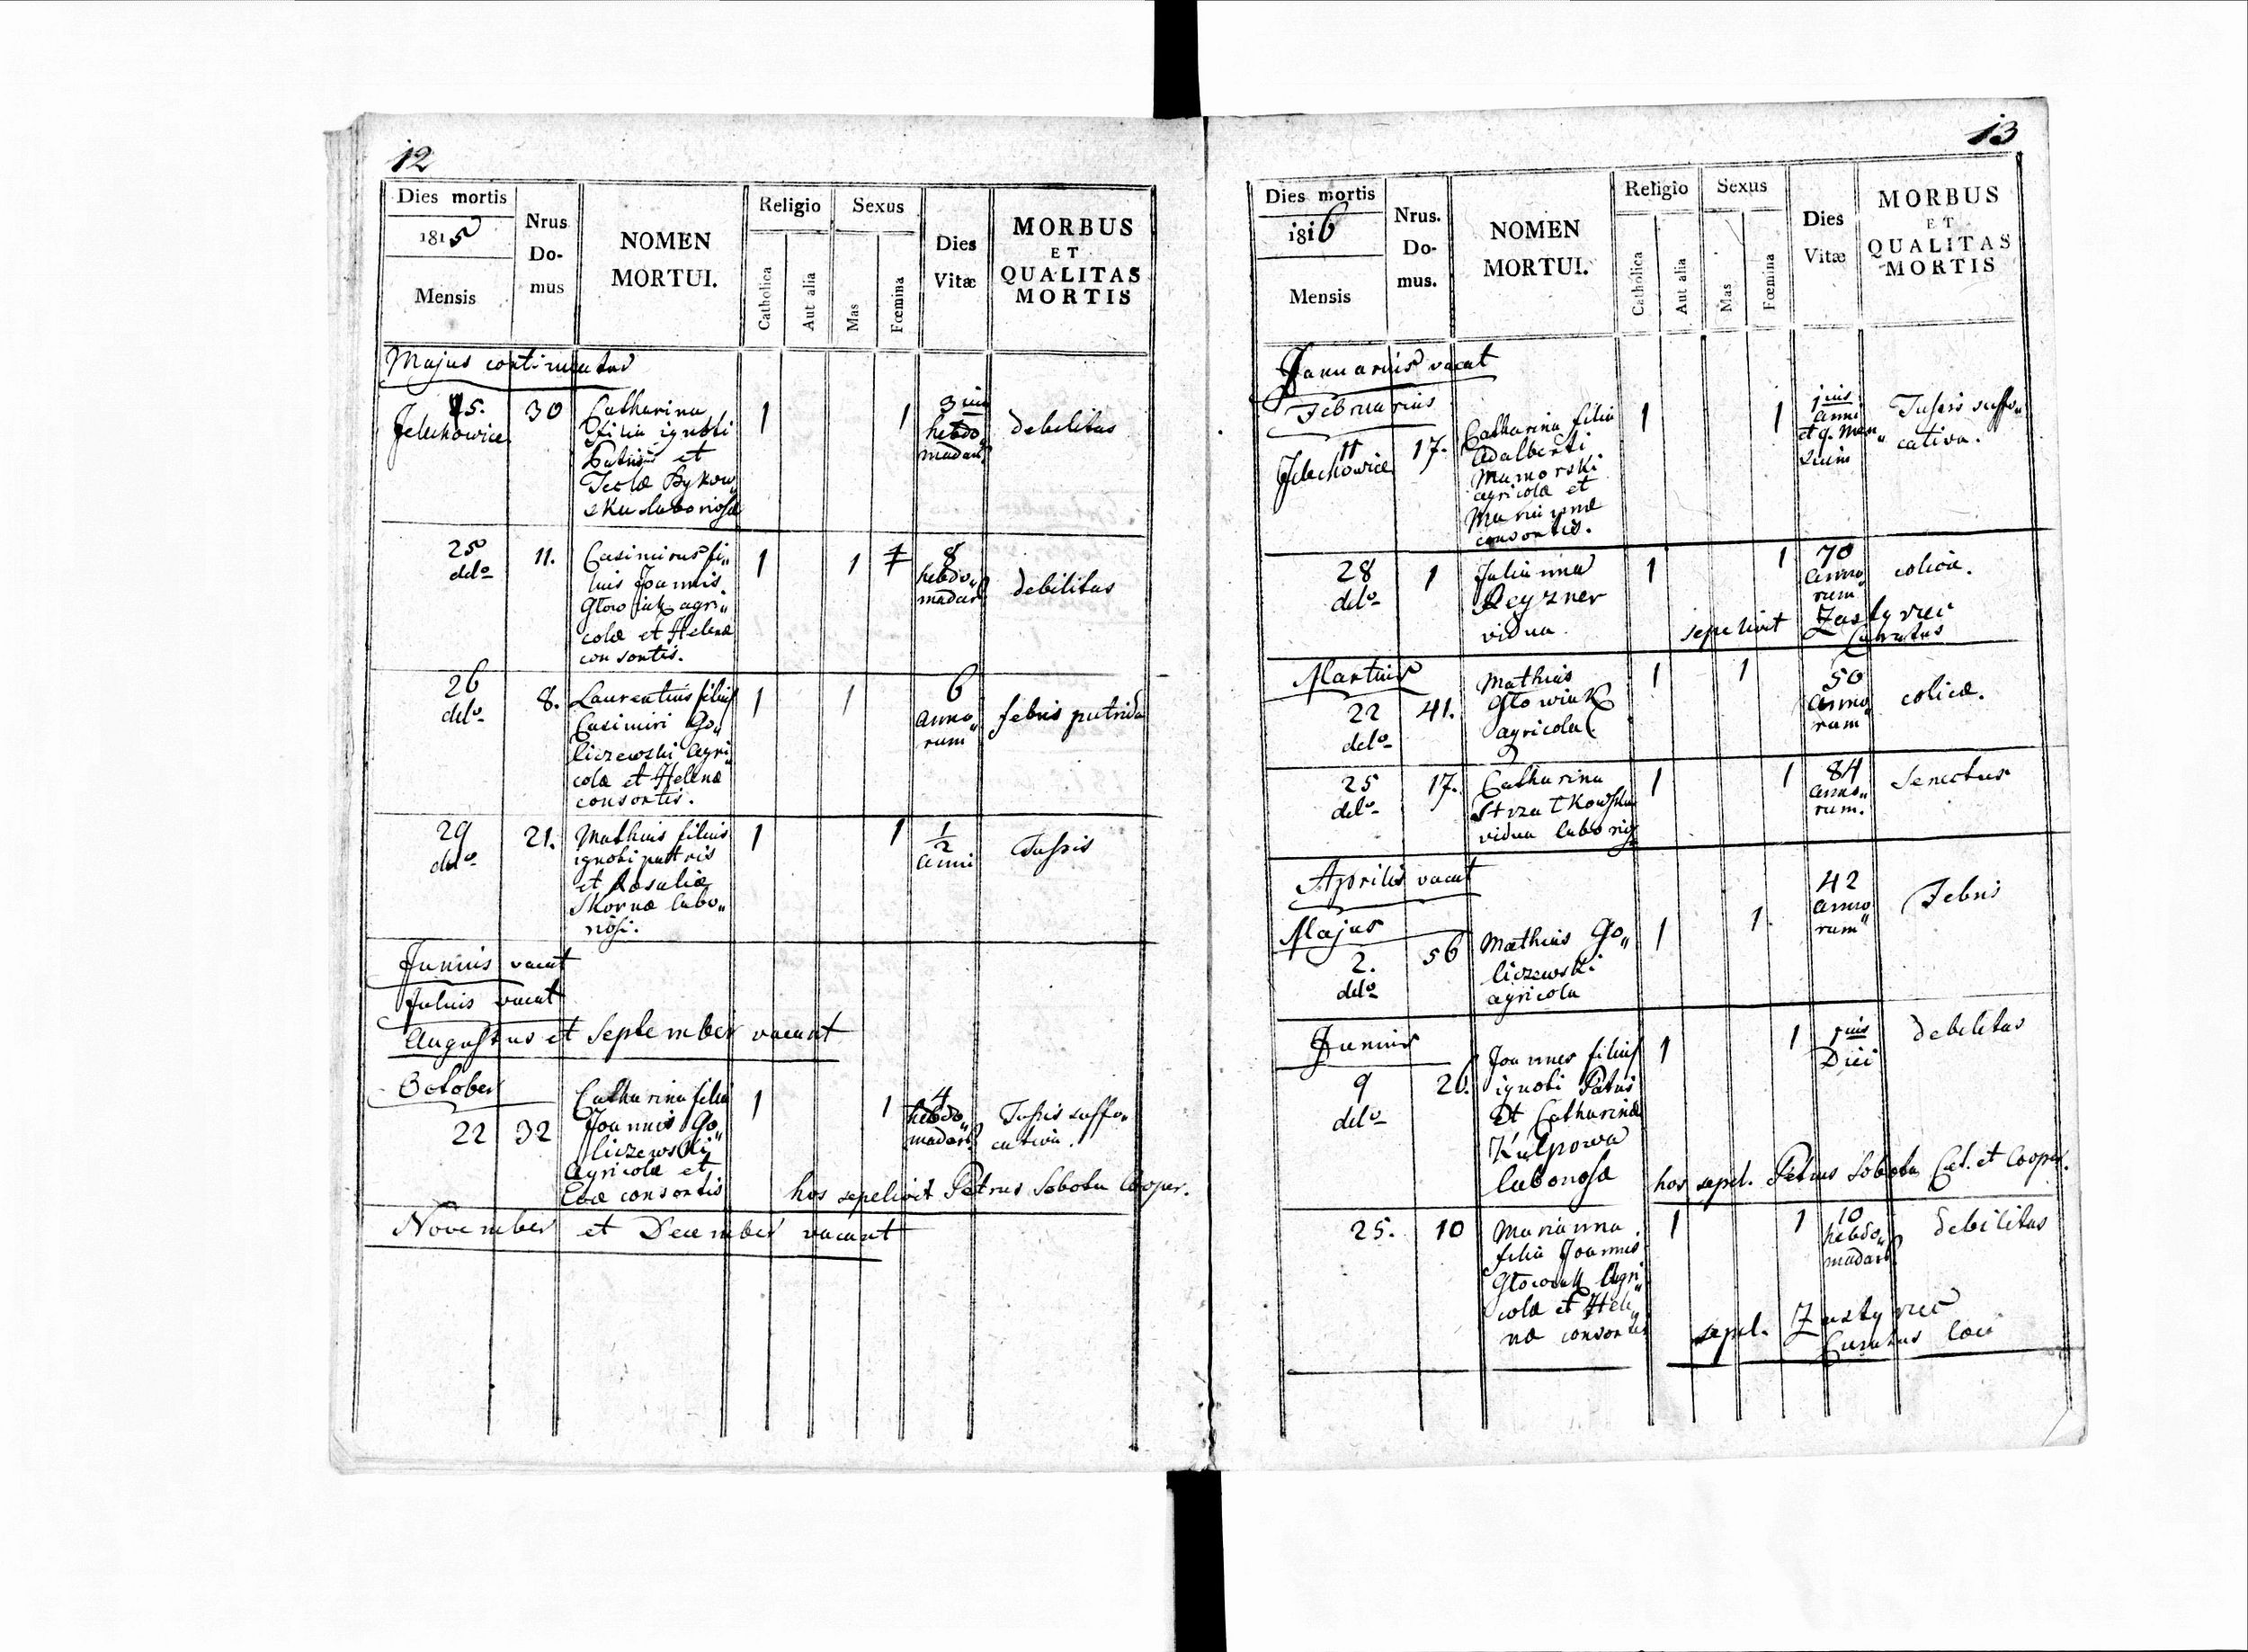 12
Dies mortis
1815
Mensis
Nrus
Do-
mus
NOMEN
MORTUI.
Religio
Catholica
Aut alia
Sexus
Mas
Fœmina
Dies
Vitæ
MORBUS
ET
QUALITAS
MORTIS
Majus continuatur
15.
Jelechowice
30
Catharina
filia ignoti
Patris et
Teclæ Bykow„
ska laboriosæ
1
1
3
hebdo„
madar.
debilitas
25
detto
11.
Casimirus fi„
lius Joannis
Głowiak agri„
colæ et Helenæ
consortis.
1
1
1
8
hebdo„
madar.
debilitas
26
detto
8.
Laurentius filius
Casimiri Go„
liczewski Agri„
colæ et Helenæ
consortis.
1
1
6
anno„
rum
febris putrida
29
detto
21.
Mathias filius
ignoti patris
et Rosaliæ
Skornæ labo„
riosi.
1
1
1/2
anni
Tussis
Junius vacat
Julius vacat
Augustus et September vacant
October
22
32
Catharina filia
Joannis Go„
liczewski
Agricolæ et
Evæ consortis
1
1
4
hebdo„
madar.
Tussis suffo„
cativa.
hos sepelivit Petrus Sobota Cooper.
November et December vacant
13
Dies mortis
1816
Mensis
Nrus.
Do-
mus.
NOMEN
MORTUI.
Religio
Catholica
Aut alia
Sexus
Mas
Fœmina
Dies
Vitæ
MORBUS
ET
QUALITAS
MORTIS
Januarius vacat
Februarius
11
Jelechowice
17.
Catharina filia
Adalberti
Mamorski
agricolæ et
Mariannæ
consortis.
1
1
1ius
anni
et 9. Men„
sium
Tussis suffo„
cativa.
28
detto
1
Julianna
Reyzner
vidua
1
1
70
anno„
rum
colica.
sepelivit Zastyrec
Curatus
Martius
22
detto
41.
Mathias
Głowiak
agricola
1
1
50
anno„
rum
colica.
25
detto
17.
Catharina
Strzałkowska
vidua laborio.
1
1
84
anno„
rum.
Senectus
Aprilis vacat
Majus
2.
detto
56
Mathias Go„
liczewski
agricola
1
1.
42
anno
rum„
Febris
Junius
9
detto
26.
Joannes filius
ignoti Patris
et Catharinæ
Kulpowa
laboriosa
1
1
1ius
Diei
debilitas
hos sepel. Petrus Sobota Cat. et Cooper.
25.
10
Marianna
filia Joannis
Głowiak Agri„
colæ et Hele„
næ consortis
1
1
10
hebdo„
madar.
debilitas
sepel. Zastyrec
Curatus loci